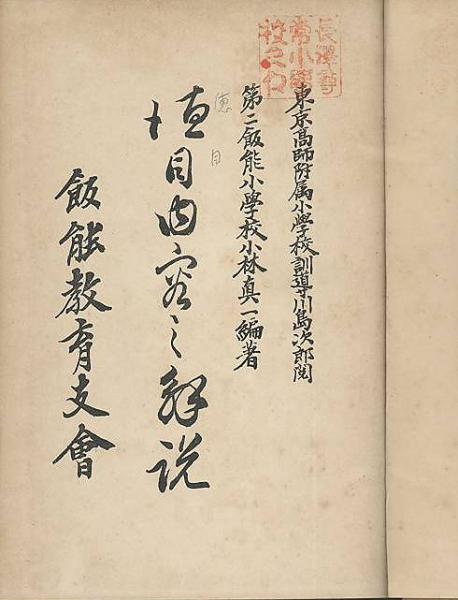 長澤尋
常小學
校之印
東京高師附属小學校訓導川島次郎閲
第二飯能小學校小林真一編著
徳
目
徳目内容之解説
飯能教育支會